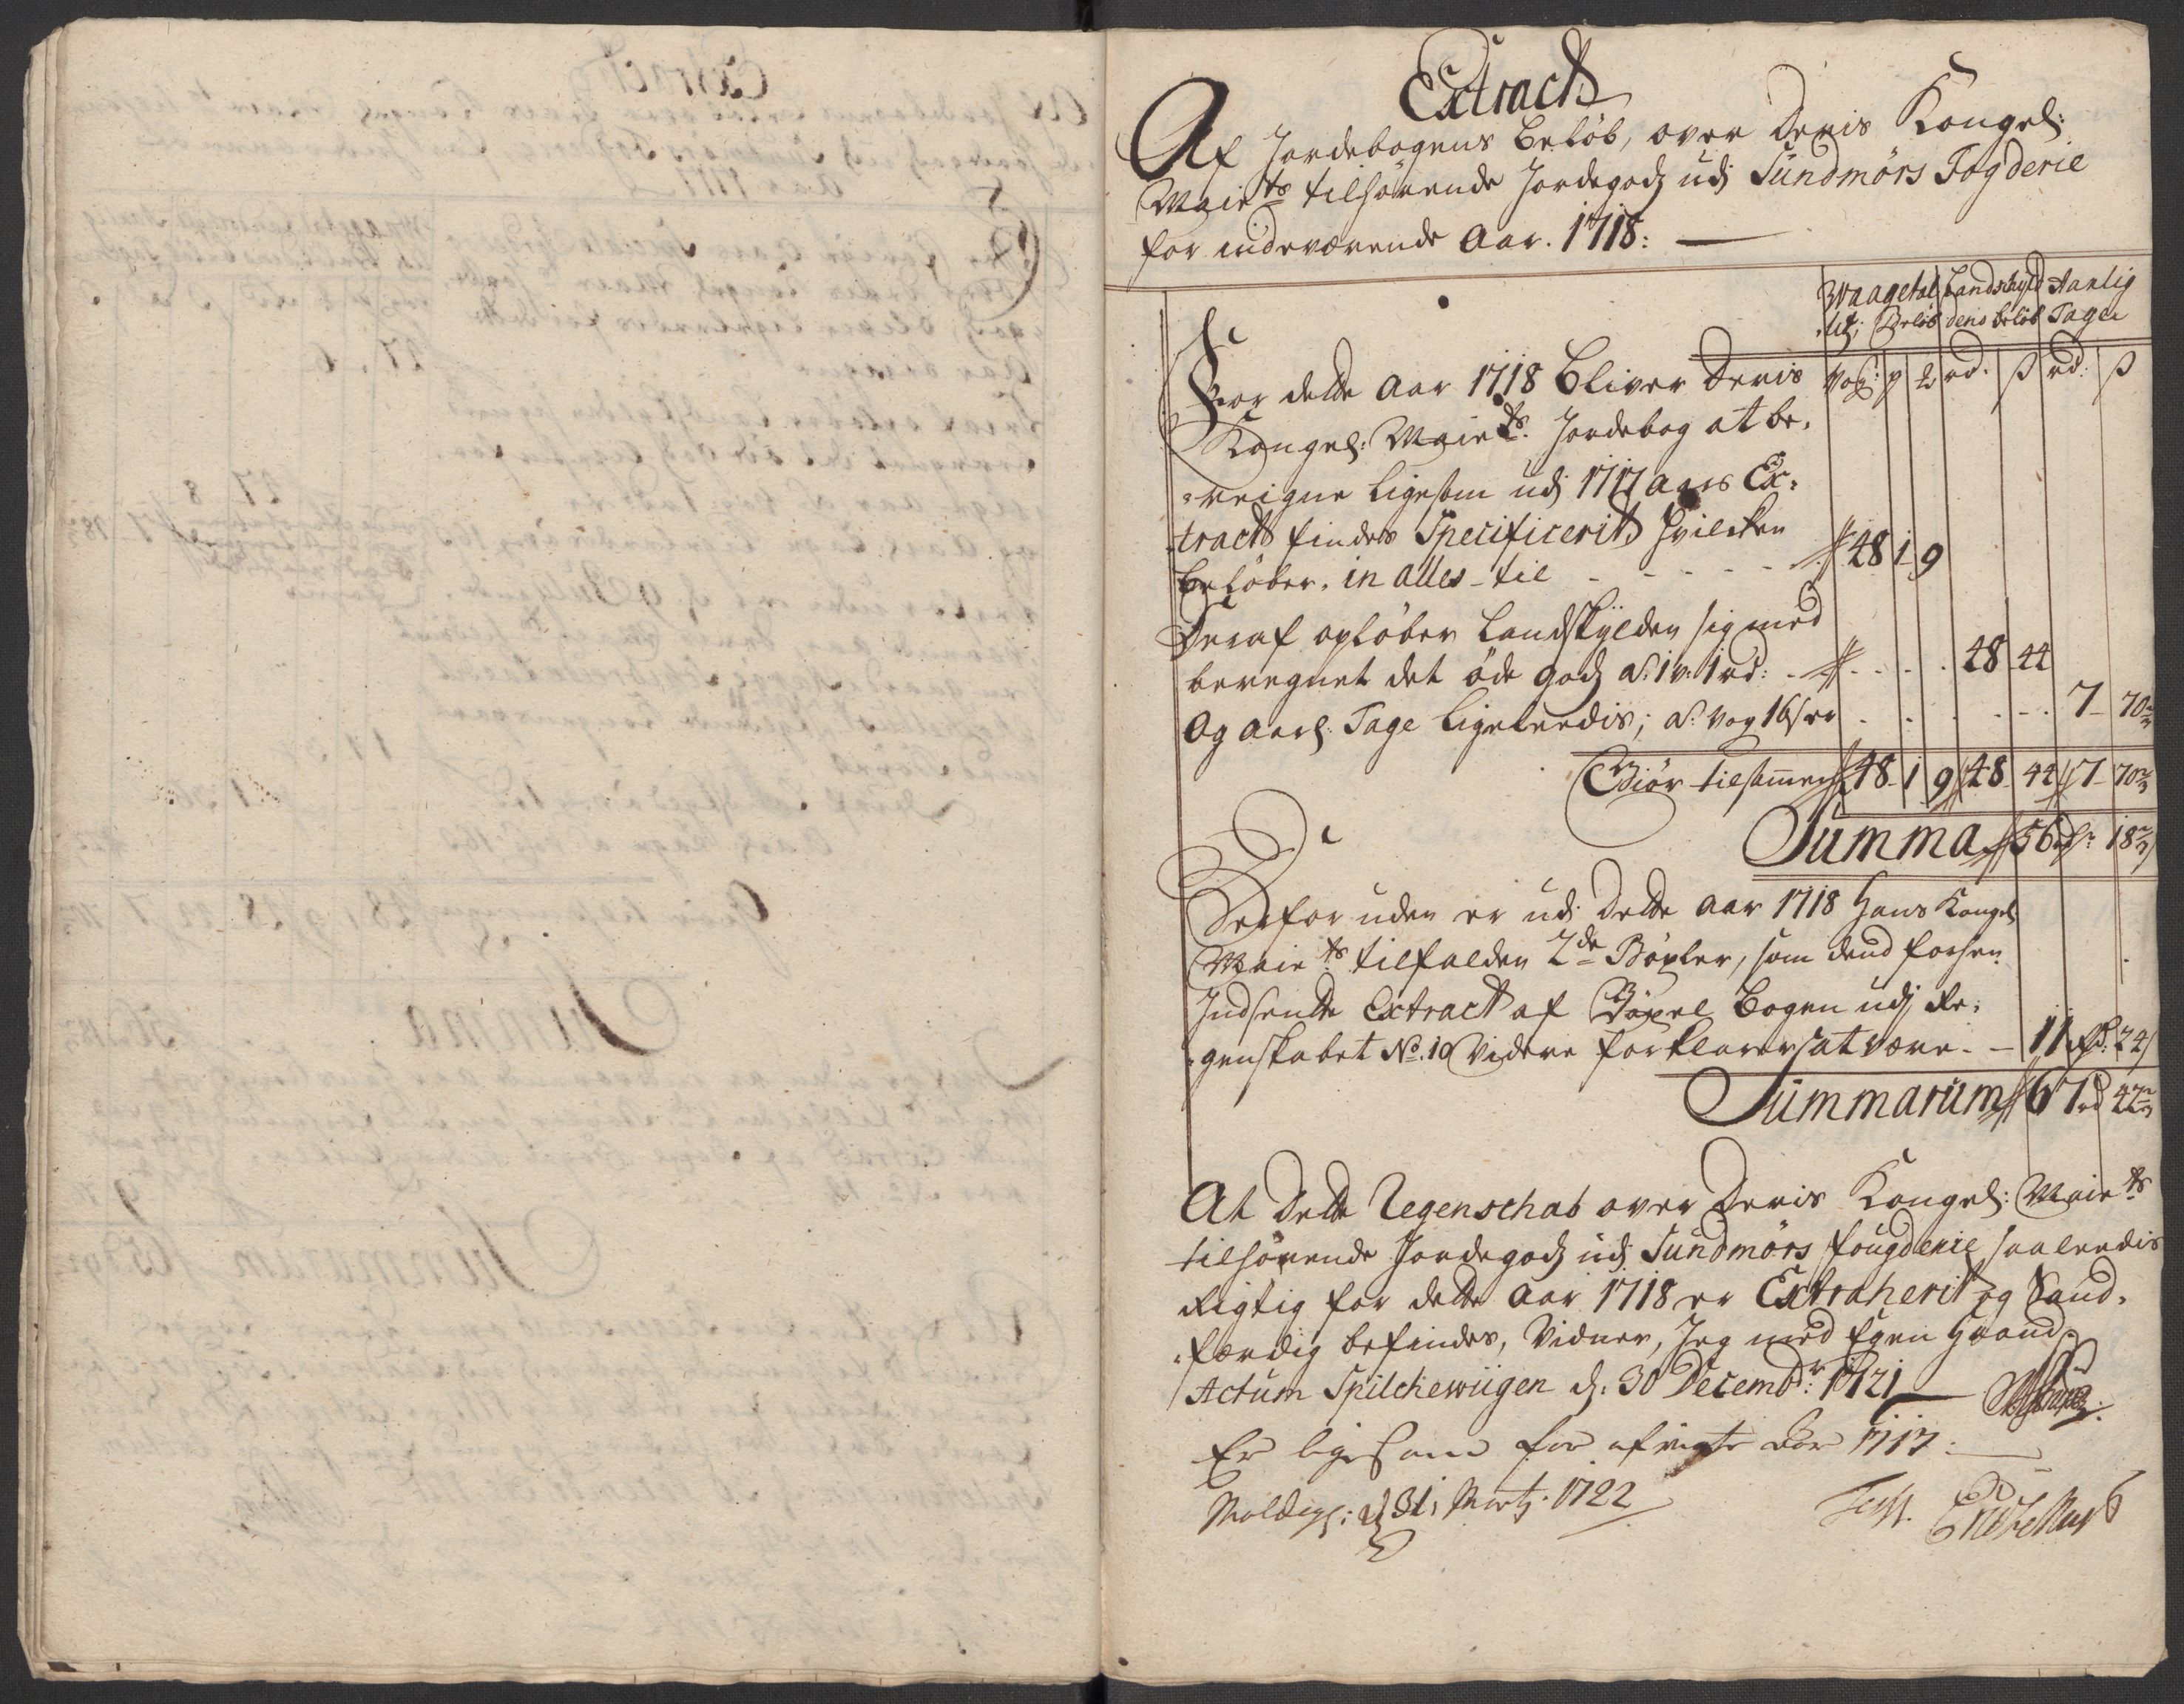 Extract
Af Jordebogens Beløb, over Deris Kongel:
Maiets tilhørende Jordegods udj Sundmørs Fogderie
for indeværende Aar. 1718:
Waagetal Landschyld Aarlig
Beløb dens beløb Tage
For dette Aar 1718 Bliver Deris Vog: p ℔ rd. ß rd: ß
Kongel: Maiets. Jordebog at be,
reigne ligesom udj 1717 aars Ex,
tract findes Specificerit, hvilcken
beløber, in alles til - - - - - 48 1 9
Deraf opløber Landskylden sig med
beregnet det øde gods a. 1 v. 1 rd: - - - 48 44
Og Aarl. Tage ligeleedis; a. vog 16 s er - - - - - 7 70⅔
Giør tilsammen 48 1 9 48 44 7 70⅔
Summa 56 rdr 18⅔
Derfor uden er udj dette Aar 1718 Hans Kongel
Maiets tilfalden 2de Bøxler, som dend forhen
Indsendte Extract af Bøxel Bogen udj Re,
genskabet No. 10 Videre forklarer at være - 11 rd: 24
Summarum 67 rd 42⅔
At Dette Regenschab over Deris Kongel: Maiets
tilhørende Jordegods udj Sundmørs fougderie saaleedis
Rigtig for dette Aar 1718 er Extraherit og Sand,
færdig befindes, Vidner, Jeg med Egen Haand
Actum Spilchewiigen d: 30 Decembr: 1721
Er ligesom for afvigte Aar 1717:
Molde d 31 Martj. 1722 Test.